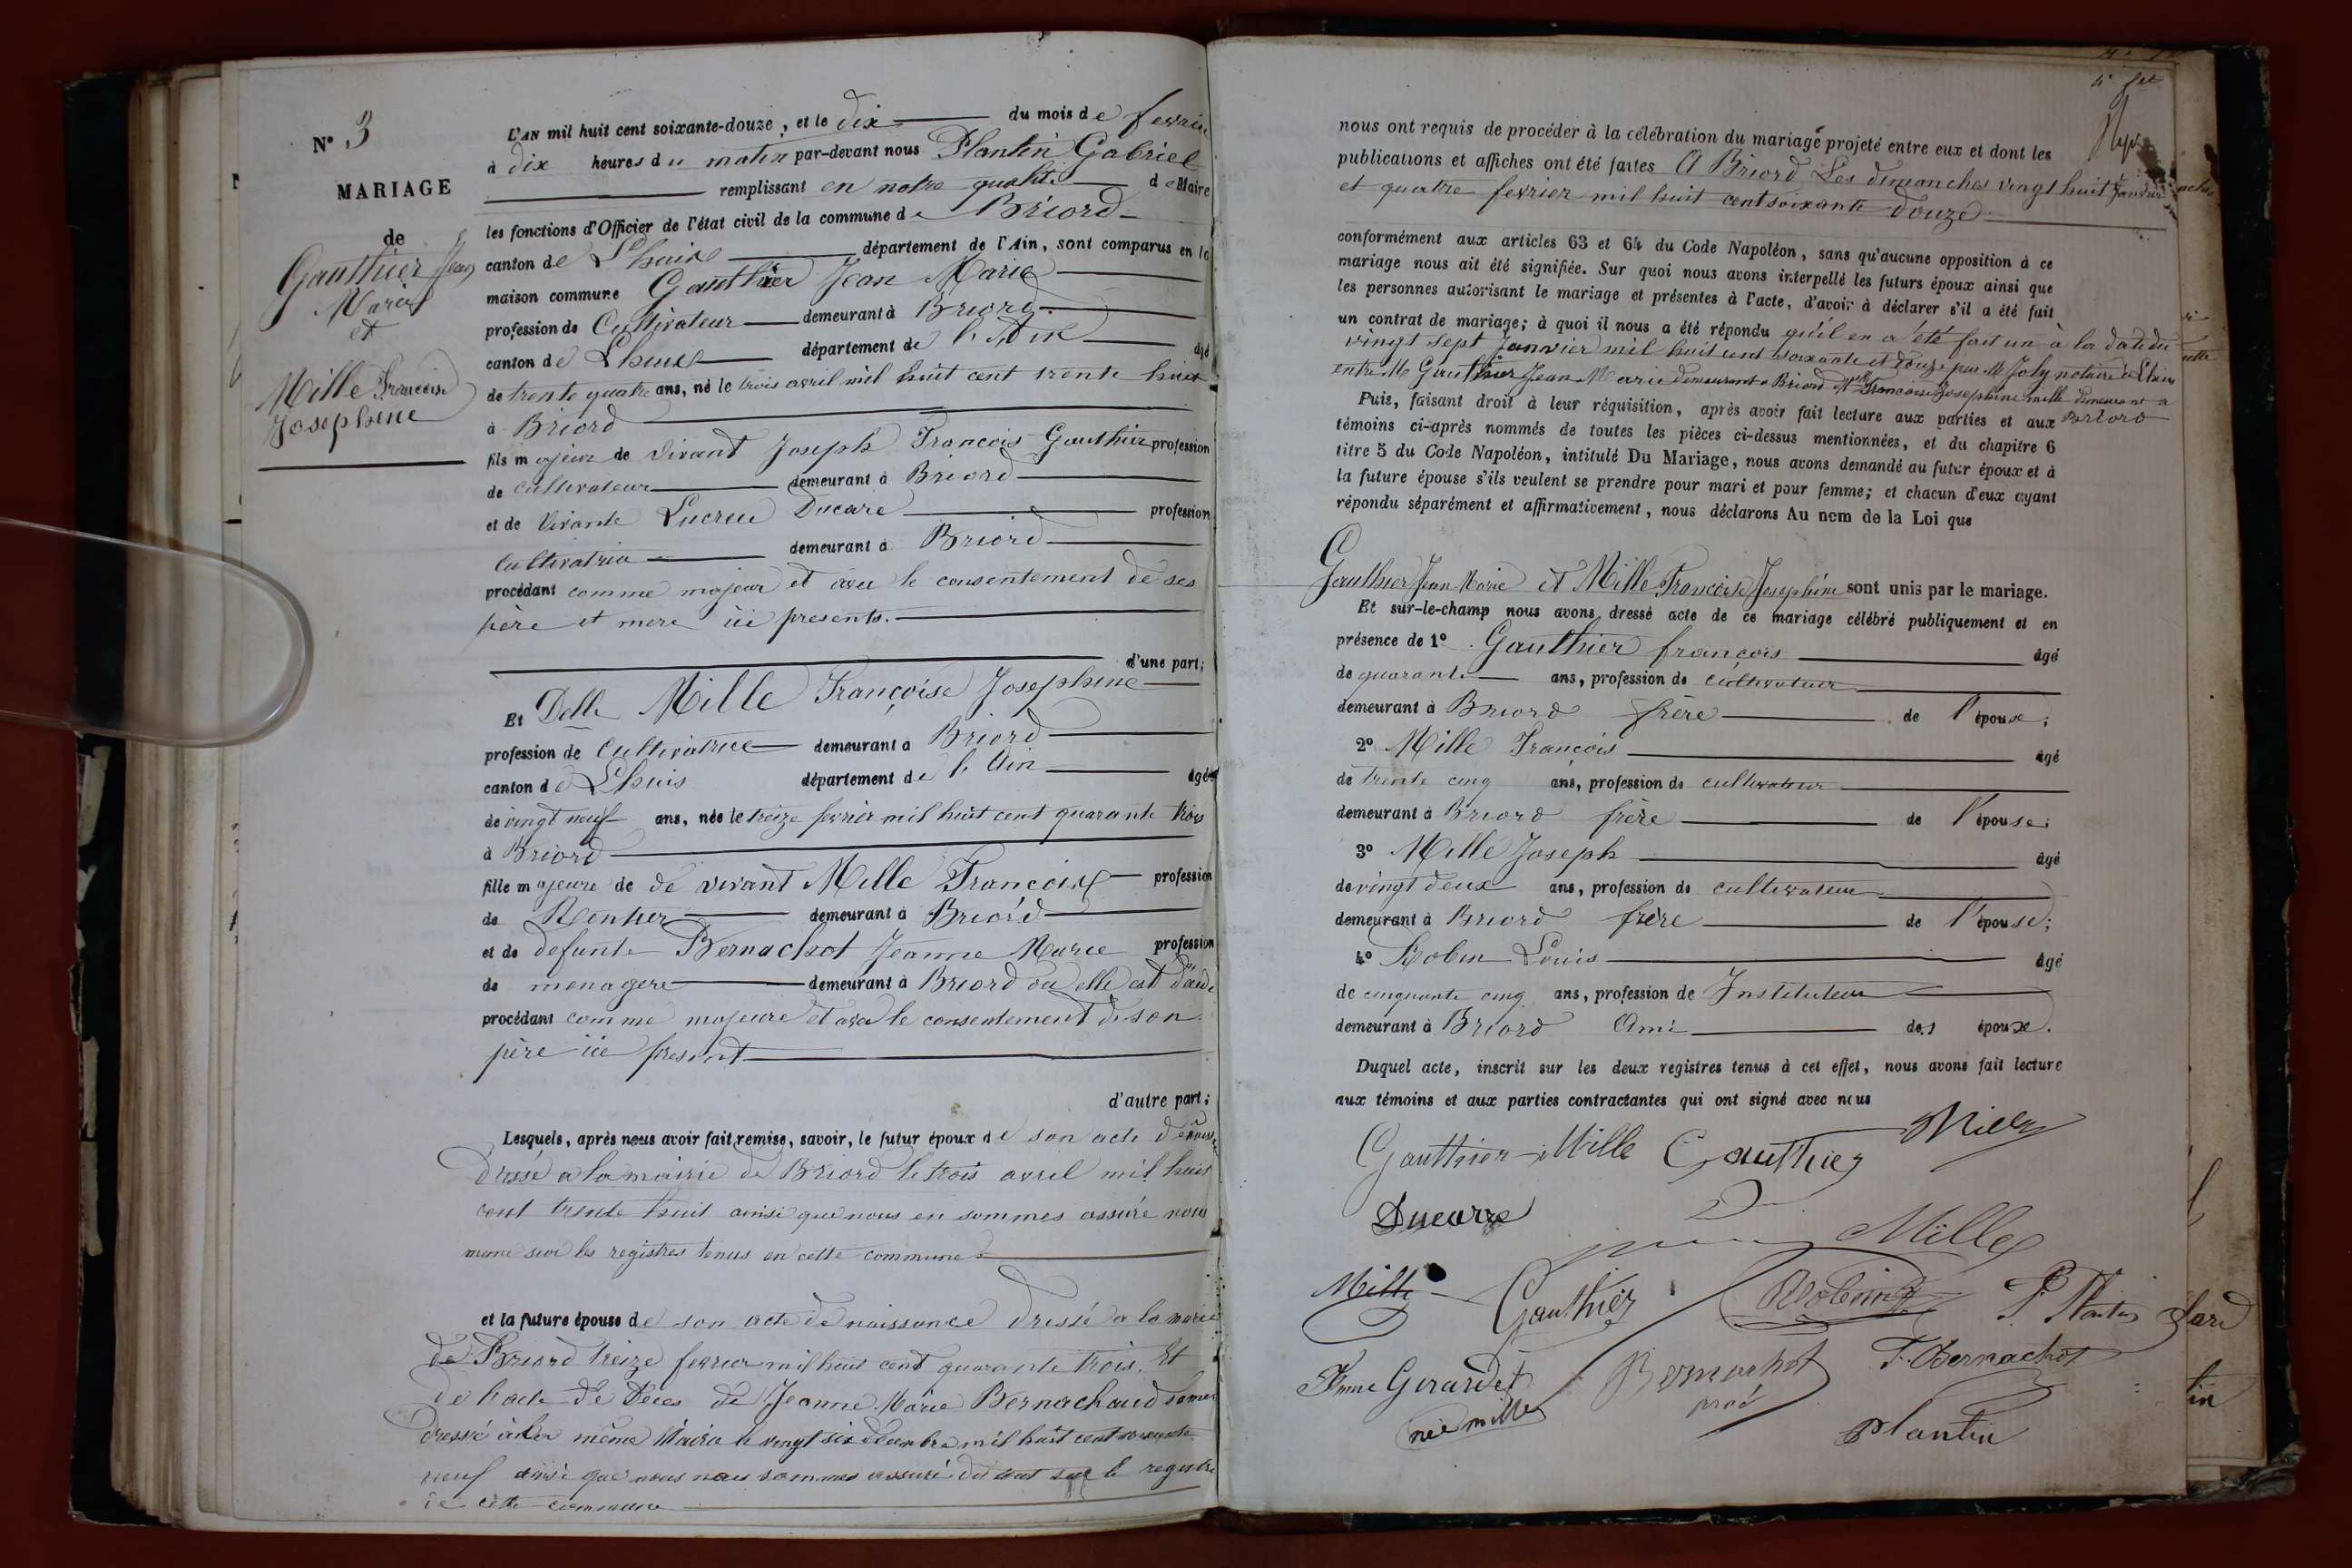 N° 3
MARIAGE
de
Gauthier Jean
Marie
et
Mille Francoise
Josephine
L'AN mil huit cent soixante-douze, et le dix du mois de fevrier
à dix heures du matin par-devant nous Plantin Gabriel
remplissant en notre qualité de Maire
les fonctions d'Officier de l'état civil de la commune de Briord
canton de Lhuis département de l'Ain, sont comparus en la
maison commune Gauthier Jean Marie
profession de Cultivateur demeurant à Briord
canton de Lhuis département de l'Ain âgé
de trente quatre ans, né le trois avril mil huit cent trente huit
à Briord
fils majeur de vivant Joseph François Gauthier profession
de cultivateur demeurant à Briord
et de vivante Lucrece Ducare profession
cultivatrice demeurant à Briord
procédant comme majeur et avec le consentement de ses
père et mere ici presents.
d'une part;
Et Delle Mille Françoise Josephine
profession de Cultivatrice demeurant à Briord
canton de Lhuis département de l'Ain âgée
de vingt neuf ans, née le treize fevrier mil huit cent quarante trois
à Briord
fille majeure de de vivant Mille François profession
de Rentier demeurant à Briord
et de defunte Bernachot Jeanne Marie profession
de menagere demeurant à Briord où elle est
procédant comme majeure et avec le consentement de son
père ici present
d'autre part;
Lesquels, après nous avoir fait remise, savoir, le futur époux de son acte de
dressé a la mairie de Briord le trois avril mil huit
cent trente huit ainsi que nous en sommes assuré nous
meme sur les registres tenus en cette commune
et la future épouse de son acte de naissance dressé a la mairie
de Briord treize fevrier mil huit cent quarante trois. Et
de l'acte de déces de Jeanne Marie Bernachaud
dressé à la même Mairie le vingt six décembre mil huit cent soixante
neuf ainsi que nous nous sommes assuré du tout sur le registre
de cette commune
nous ont requis de procéder à la célébration du mariage projeté entre eux et dont les
publications et affiches ont été faites A Briord Les dimanches vingt huit Janvier
et quatre fevrier mil huit cent soixante douze
conformément aux articles 63 et 64 du Code Napoléon, sans qu'aucune opposition à ce
mariage nous ait été signifiée. Sur quoi nous avons interpellé les futurs époux ainsi que
les personnes autorisant le mariage et présentes à l'acte, d'avoir à déclarer s'il a été fait
un contrat de mariage; à quoi il nous a été répondu qu'il en a été fait un à la date du
vingt sept Janvier mil huit cent soixante et douze par M Joly notaire à Lhuis
entre M Gauthier Jean Marie demeurant a Briord et Francoise Josephine mille demeurant a
Briord
Puis, faisant droit à leur réquisition, après avoir fait lecture aux parties et aux
témoins ci-après nommés de toutes les pièces ci-dessus mentionnées, et du chapitre 6
titre 5 du Code Napoléon, intitulé Du Mariage, nous avons demandé au futur époux et à
la future épouse s'ils veulent se prendre pour mari et pour femme; et chacun d'eux ayant
répondu séparément et affirmativement, nous déclarons Au nom de la Loi que
Gauthier Jean Marie et Mille Francoise Josephine sont unis par le mariage.
Et sur-le-champ nous avons dressé acte de ce mariage célébré publiquement et en
présence de 1° Gauthier françois âgé
de quarante ans, profession de cultivateur
demeurant à Briord frère de l'épouse;
2° Mille François âgé
de trente cinq ans, profession de cultivateur
demeurant à Briord frère de l'épouse;
3° Mille Joseph âgé
de vingt deux ans, profession de cultivateur
demeurant à Briord frère de l'épouse;
4° Robin Louis âgé
de cinquante cinq ans, profession de Instituteur
demeurant à Briord Ami des époux.
Duquel acte, inscrit sur les deux registres tenus à cet effet, nous avons fait lecture
aux témoins et aux parties contractantes qui ont signé avec nous
Gauthier Mille Gauthier Mille
Ducarre
Mille
Mille Gauthier Robin P. Plantin
Girardet Bernachot F. Bernachot
née mille
Plantin